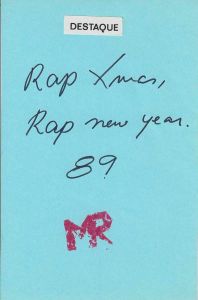 DESTAQUE
Rap Xmas,
Rap new year.
89
MR